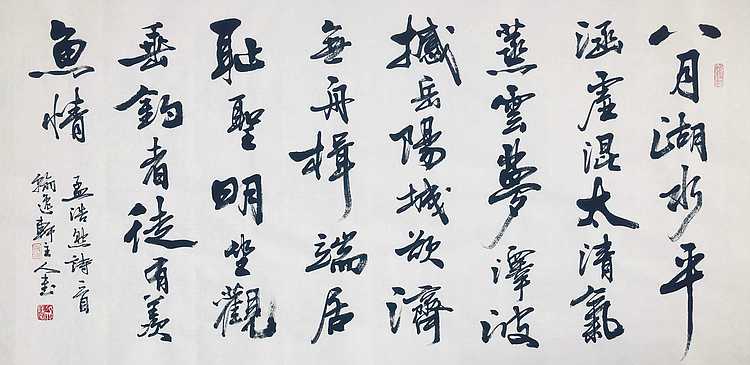 八月湖水平
涵虛混太清氣
蒸雲夢澤波
撼岳陽城欲濟
無舟楫端居
恥聖明坐觀
垂釣者徒有羨
魚情
孟浩然詩一首
翰逸軒主人書